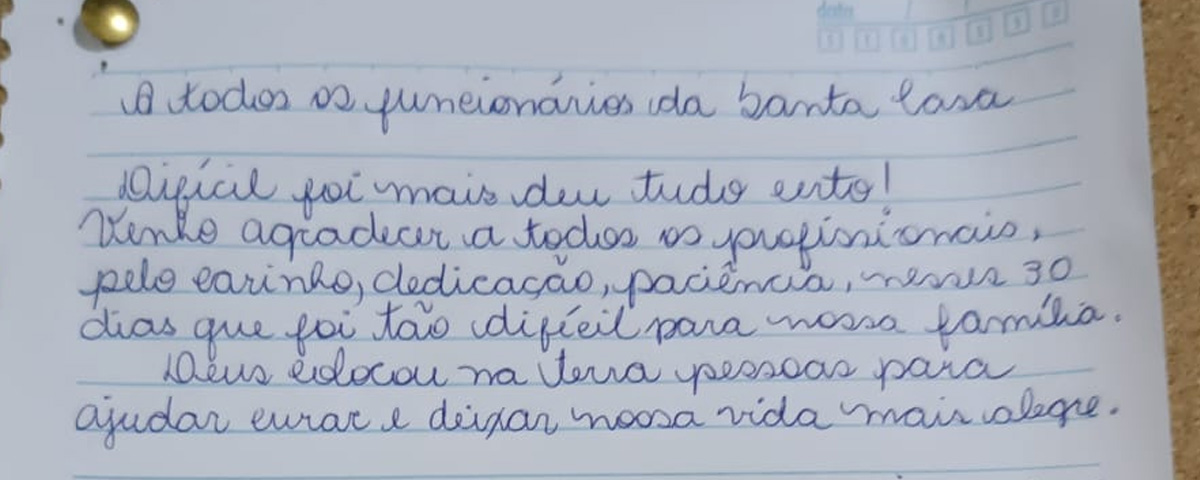 data
A todos os funcionários da Santa Casa
Difícil foi mais deu tudo certo!
Venho agradecer a todos os profissionais,
pelo carinho, dedicação, paciência, nesses 30
dias que foi tão difícil para nossa família.
Deus colocou na terra pessoas para
ajudar curar e deixar nossa vida mais alegre.